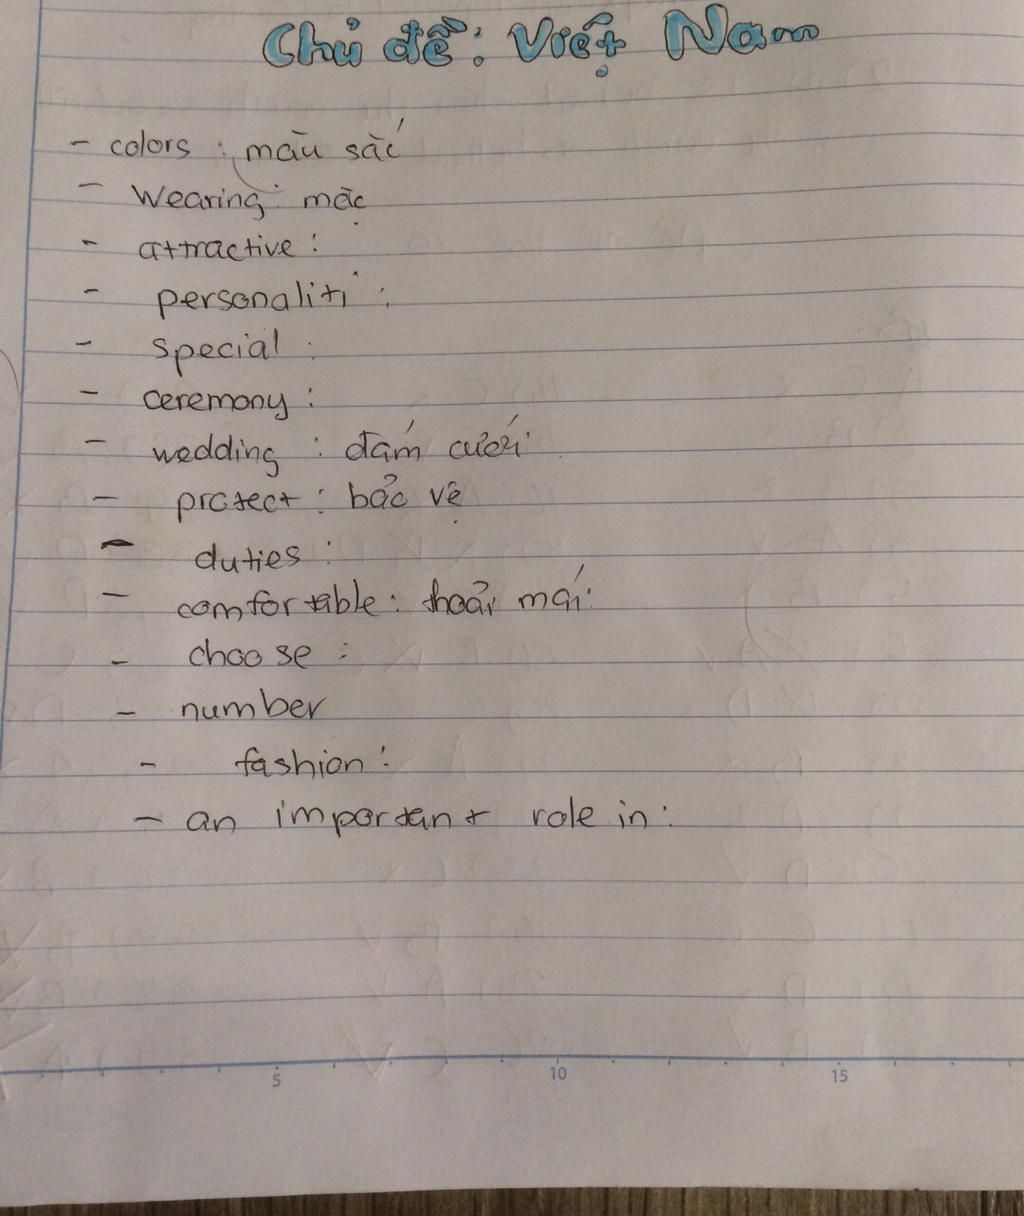 Chủ đề: Việt Nam
- colors : màu sắc
- Wearing : mặc
- attractive :
- personaliti :
- special :
- ceremony :
- wedding : đám cưới
- protect : bảo vệ
- duties :
- comfortable : thoải mái
- choose :
- number
- fashion :
- an important role in :
5 10 15